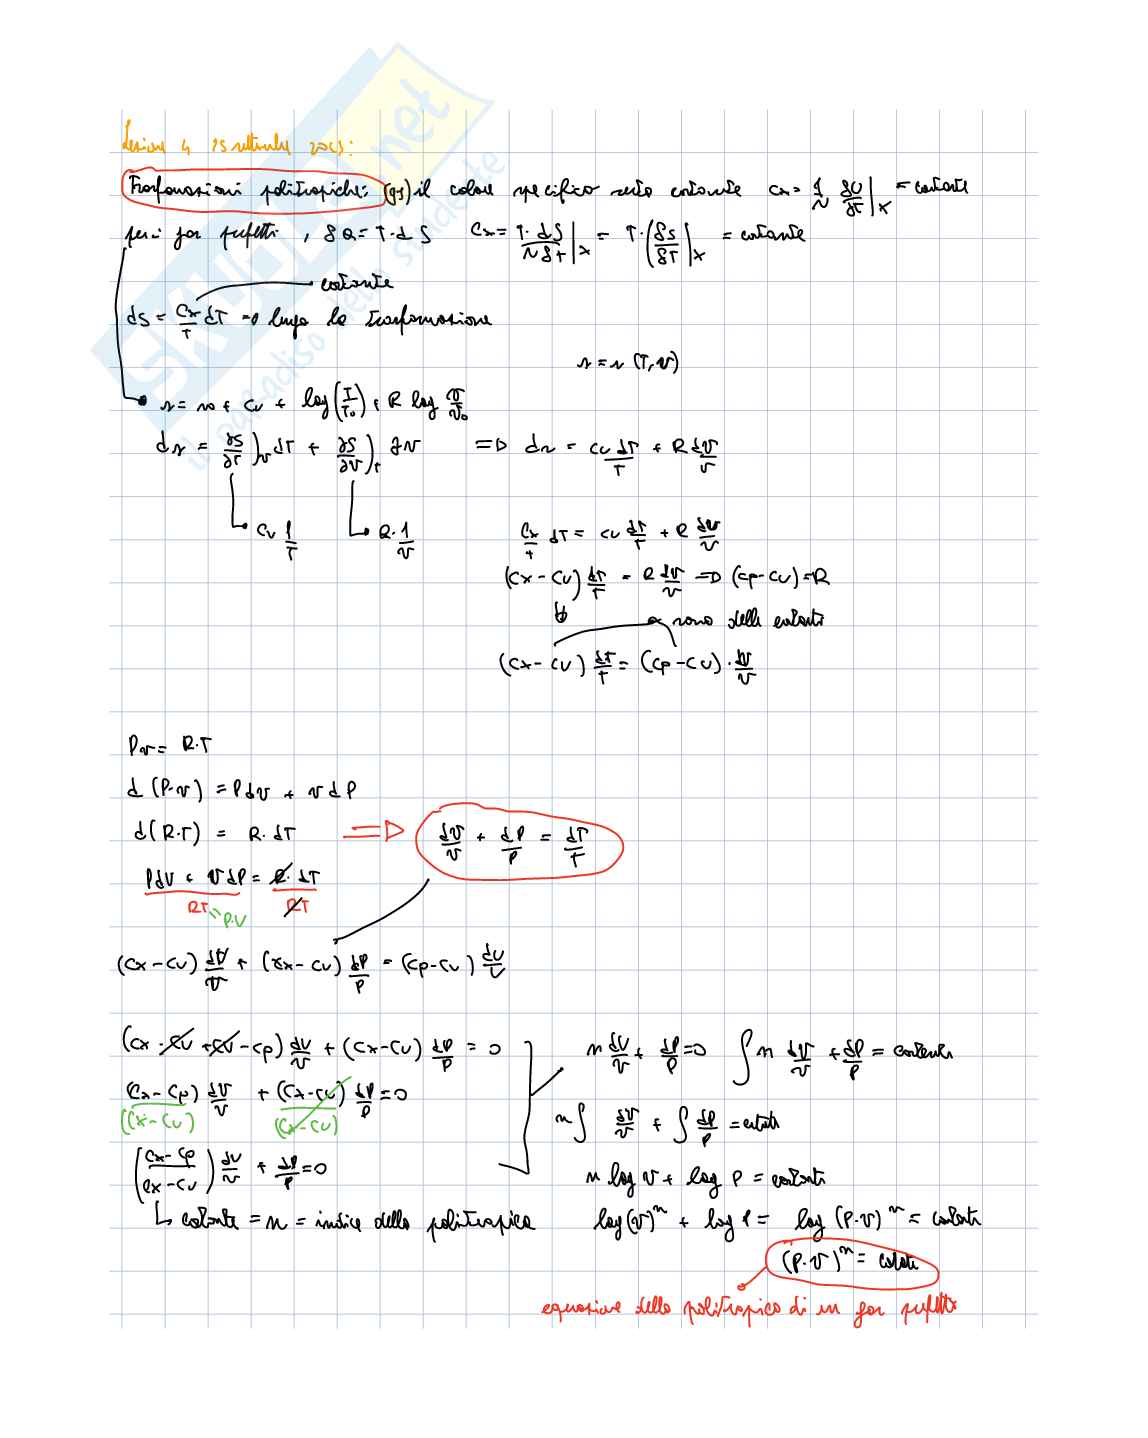 Lezione 4 25 settembre 2023:
Trasformazioni politropiche: (gs) il calore specifico resta costante Cx = 1/N δU/δT |x = costante
per i gas perfetti, δQ = T·dS Cx = T·dS/NδT |x = T·(δS/δT |x = costante
costante
dS = Cx/T dT => lungo la trasformazione
s = s (T, v)
s = so + cv + log(T/To) + R log v/vo
ds = ∂S/∂T )v dT + ∂S/∂v )T ∂v => ds = cv dT/T + R dv/v
Cv 1/T R·1/v
Cx/T dT = cv dT/T + R dv/v
(Cx - Cv) dT/T = R dv/v => (Cp - Cv) = R
sono delle costanti
(Cx - Cv) dT/T = (Cp - Cv) · dv/v
Pv = R·T
d (P·v) = Pdv + vdP
d(R·T) = R·dT => dv/v + dP/P = dT/T
Pdv + vdP = R·dT
RT = P·V RT
(Cx - Cv) dv/v + (Cx - Cv) dP/P = (Cp - Cv) dv/v
(Cx - Cv + Cv - Cp) dv/v + (Cx - Cv) dP/P = 0
n dv/v + dP/P = 0 ∫ n dv/v + dP/P = costante
(Cx - Cp) dv/v + (Cx - Cv) dP/P = 0
(Cx - Cv) (Cx - Cv)
n ∫ dv/v + ∫ dP/P = costante
(Cx - Cp / Cx - Cv) dv/v + dP/P = 0
n log v + log P = costante
costante = n = indice della politropica
log(v)^n + log P = log (P·v)^n = costante
(P·v)^n = costante
equazione della politropica di un gas perfetto